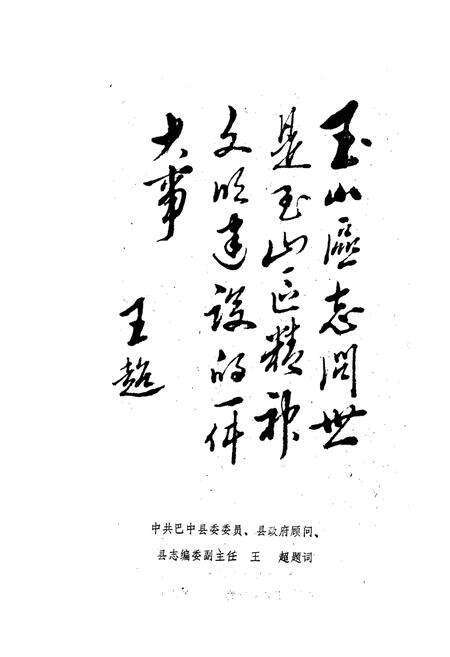 玉山区志问世
是玉山区精神
文明建设的一件
大事
王超
中共巴中县委委员、县政府顾问、
县志编委副主任　王　超题词